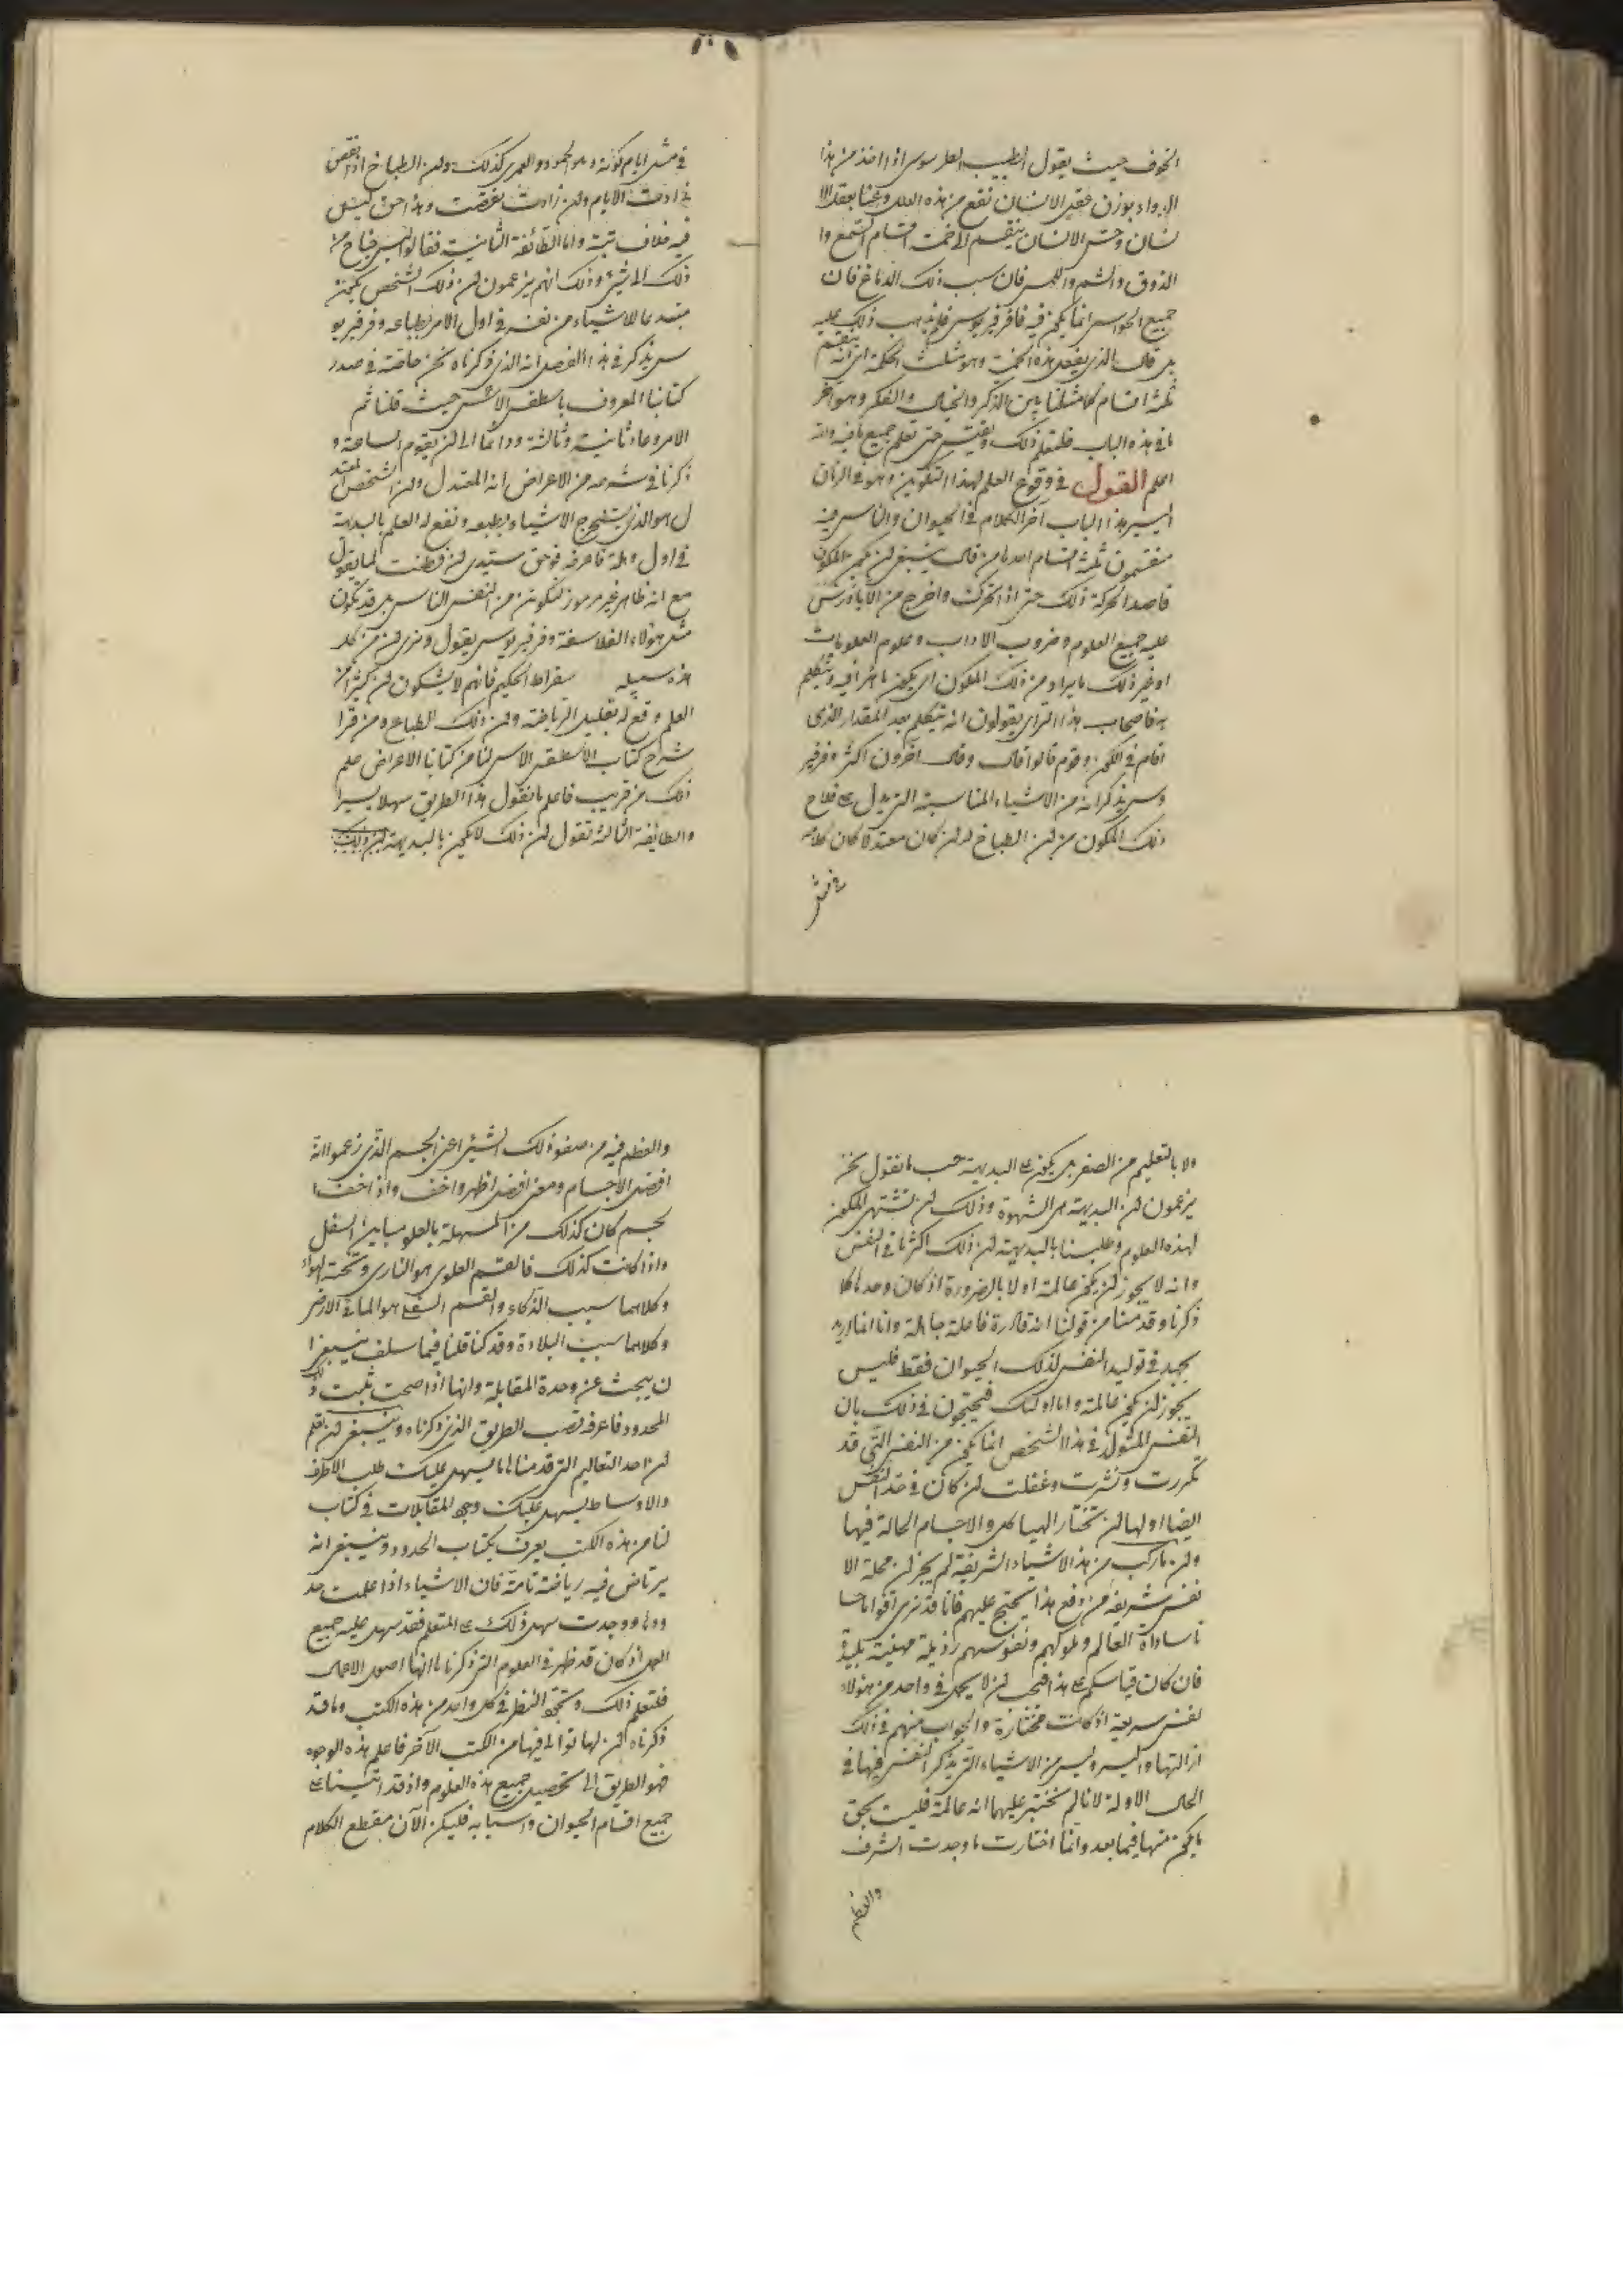 الخوف حيث يقول الطبيب العلوسوس اذا اخذ من هذا
الدواء بوزن عقل الانسان نفع من هذه العلل وعنا بعقل الا
نسان وحس الانسان ينقسم الى خمسة اقسام السمع وا
الذوق والشم واللمس فان سبب ذلك الدماغ فان
جميع الحواس انما يكون فيه فاما فرفريوس فلم يذهب ذلك عليه
بل قال الذي يفعل هذه الخمسة وهو مثلث الحكمة اي انه ينقسم
ثلثة اقسام كما مثلنا بين الذكر والخيال والفكر وهو آخر
ما في هذه الباب فلتعلم ذلك وتفتيش حتى تعلم جميع ما فيه والله
اعلم القول في وقوع العلم لهذا التكوين وهو في الزمان
اليسير هذا الباب آخر الكلام في الحيوان والناس فيه
منقسمون ثلثة اقسام احدها من قال ينبغي ان يكون المكون
قاصدا لحركة ذلك حتى اذا تحرك واخرج من الآلة درس
عليه جميع العلوم وضروب الاداب وعلوم العلويات
او غير ذلك ما يراد من ذلك المكون ان يكون ماهرا فيه ويتكلم
به فاصحاب هذا الراي يقولون انه يتكلم بعد المقدار الذي
اقام في الكون وقوم قالوا اقل وقال آخرون اكثر وفرفير
وس يذكر انه من الاشياء المناسبة التي يدل على فلاح
ذلك المكون من ان الطباخ له ان كان معتدلا كان كلامه
في مثل
في مثل ايام كونه وهو المحمود والعمري كذلك وان الطباخ اذا نقص
زادت الايام وان زادت نقصت وهذا حق ليس
فيه خلاف بتة واما الطائفة الثانية فقالوا ليس يحتاج من
ذلك الى شيء وذلك انهم يزعمون ان ذلك الشخص يكون
مبتدعا للاشياء من نفسه في اول الامر بطباعه وفرفريو
س يذكر في هذا الفصل انه الذي ذكرناه نحن خاصة في صدر
كتابنا المعروف باسطقس الاس حيث قلنا ثم
الامر وعاد ثانية وثالثة ودائما الى ان يقوم الساعة و
ذكرنا في شرحه من الاعراض انه المعتدل وان الشخص المعتد
ل هو الذي يستخرج الاشياء بطبعه ويقع له العلم بالبديهة
في اول وهلة فاعرفه فوحق سيدي لئن فطنت لما يقول
مع انه ظاهر غير مرموز لتكونن من النفس الناس بل قد تكون
مثل هؤلاء الفلاسفة وفرفريوس يقول ونرى ان من كل
هذه سبيله سقراط الحكيم فانهم لا يشكون ان كثيرا من
العلم وقع له بقليل الرياضة وان ذلك لطباعه ومن قرا
شرح كتاب الاسطقس الاس لنا من كتابنا الاعراض علم
ذلك من قريب فاعلم ما نقول هذا الطريق سهلا يسيرا
والطايفة الثالثة تقول ان ذلك لا يكون بالبديهة
ولا بالتعليم من الصغر بل يكون على البديهة حسب ما نقول نحن
يزعمون ان البديهة هي الشهوة وذلك ان تشتهي المكون
لهذه العلوم وطلبنا بالبديهة ان ذلك اكثر ما في النفس
وانه لا يجوز ان يكون عالمة اولا بالضرورة اذ كان وحدها كما
ذكرنا وقد منا من قولنا انه قادرة فاعلة جاهلة وانا انما نريد
بجيد في توليد النفس لذلك الحيوان فقط فليس
يجوز ان يكون عالمة واما اولئك فيحتجون في ذلك بان
النفس المتولدة في هذا الشخص انما يكون من النفس التي قد
تكررت ونشرت وغفلت ان كان في حد النفس
ايضا اولها ان تختار الهياكل والاجسام الحالة فيها
وان ما ركب من هذه الاشياء الشريفة لم يجز ان محله الا
نفس شريفة من دفع هذا يحتج عليهم فانا قد نرى اقواما حسا
نا سادات العالم وملوكهم ونفوسهم رذيلة مهينة بليدة
فان كان قياسكم على هذا فيجب ان لا يحل في واحد من هؤلاء
نفس سريعة اذ كانت مختارة والجواب منهم في ذلك
ازالتها واليسر وليس من الاشياء التي يذكر النفس فيها في
الحال الاولة لانا لم نختبر عليهما انه عالمة فليست بحق
ما يكون منها فيما بعد وانما اختارت ما وجدت الشرف
والعظم
والعظم فيه من صفوة ذلك الشيء اعني الجسم الذي زعموا انه
افضل الاجسام ومعنى افضل اظهر واخف واذا اخف ا
لجسم كان كذلك من السهلة بالعلو مباين السفل
واذا كانت كذلك فالقسم العلوي هو الناري وتحته الهواء
وكلاهما سبب الذكاء والقسم السفلي هو الماء في الارض
وكلاهما سبب البلادة وقد كنا قلنا فيما سلف ينبغي ا
ن يبحث عن وحدة المقابلة وانها اذا صحت ثبت ذلك
المحدود فاعرفه نصب الطريق الذي ذكرناه وينبغي ان تعلم
ان احد التعاليم التي قد منا ها ليسهل عليك طلب الاطراف
والاوساط ليسهل عليك وجه المقابلات في كتاب
لنا من هذه الكتب يعرف بكتاب الحدود وينبغي انه
يرتاض فيه رياضة تامة فان الاشياء اذا علمت حد
ودها ووجدت سهل ذلك على المتعلم فقد سهل عليه جميع
العمل اذ كان قد ظهر في العلوم التي ذكرناها انها اصول الاعمال
فلتعلم ذلك وتتحقق النظر في كل واحد من هذه الكتب وما قد
ذكرناه ان لها توالي فيها من الكتب الآخر فاعلم هذه الوجوه
فهو الطريق الى تحصيل جميع هذه العلوم واذ قد اتينا على
جميع اقسام الحيوان واسبابه فليكن الآن مقطع الكلام